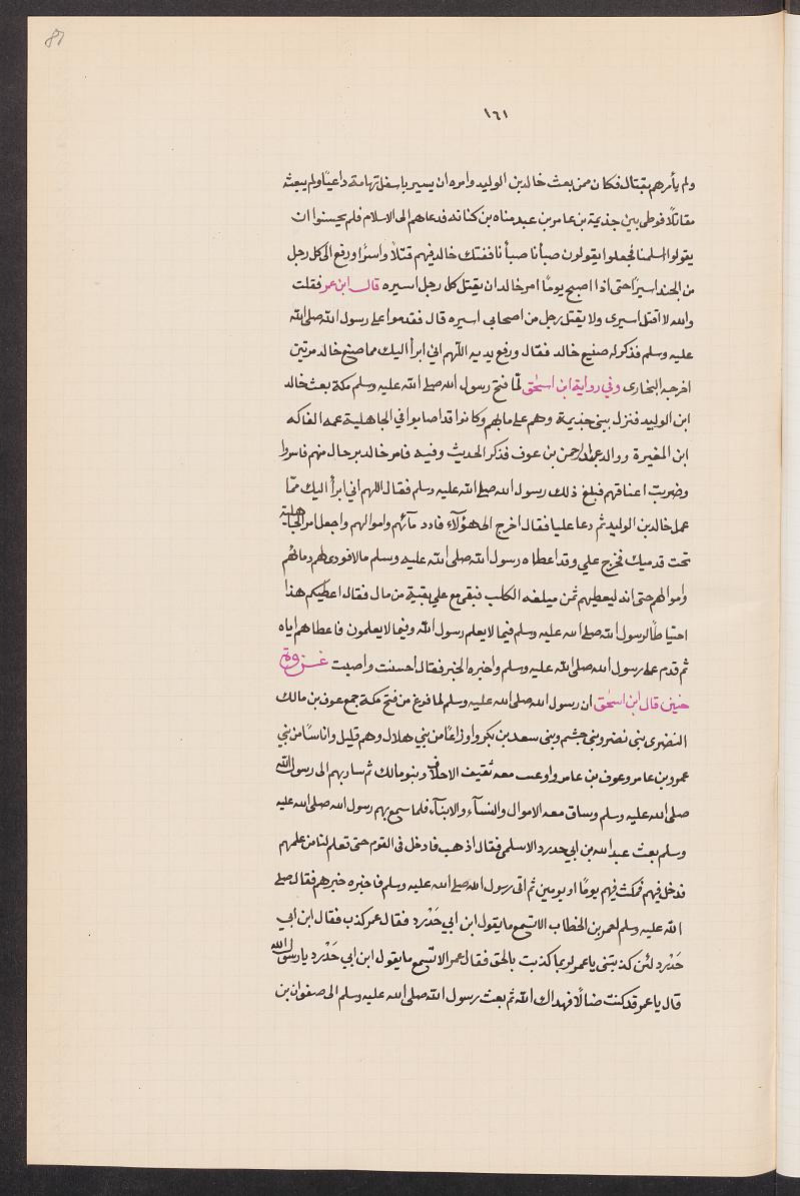 81
١٦١
ولم يأمرهم بقتال فكان ممن بعث خالد بن الوليد وامره ان يسير باسفل تهامة داعيًا ولم يبعثه
مقاتلًا فوطى بنى جذيمة بن عامر بن عبد مناه بن كنانه فدعاهم الى الاسلام فلم يحسنوا ان
يقولوا اسلمنا فجعلوا يقولون صبأنا صبأنا ففتك خالد فيهم قتلًا واسرًا ورفع الى كل رجل
من الجند اسيرًا حتى اذا اصبح يومًا امر خالد ان يقتل كل رجل اسيره قال ابن عمر فقلت
والله لا اقتل اسيرى ولا يقتل رجل من اصحابى اسيره قال فقدموا على رسول الله صلى الله
عليه وسلم فذكر له صنيع خالد فقال ورفع يديه اللهم انى ابرأ اليك مما صنع خالد مرتين
اخرجه البخارى وفي رواية ابن اسحٰق لمّا فتح رسول الله صلى الله عليه وسلم مكة بعث خالد
ابن الوليد فنزل ببنى جذيمة وهم على مابهم وكانوا قد اصابوا في الجاهلية عمه الفاكه
ابن المغيرة ووالد عبد الرحمن بن عوف فذكر الحديث وفيه فامر خالد برجال منهم فاسروا
وضربت اعناقهم فبلغ ذلك رسول الله صلى الله عليه وسلم فقال اللهم اني ابرأ اليك ممّا
عمل خالد بن الوليد ثم دعا عليا فقال اخرج الى هؤلآء فادد مآئهم واموالهم واجعل امر الجاهلية
تحت قدميك فخرج علي وقد اعطاه رسول الله صلى الله عليه وسلم مالا فودى لهم دمائهم
واموالهم حتى انه ليعطيهم ثمن ميلغه الكلب فبقى مع علي بقية من مال فقال اعطيكم هذا
احتياطًا لرسول الله صلى الله عليه وسلم فيما لا يعلم رسول الله وفيما لا يعلمون فاعطاهم اياه
ثم قدم على رسول الله صلى الله عليه وسلم واخبره الخبر فقال احسنت واصبت غزوة
حنين قال ابن اسحٰق ان رسول الله صلى الله عليه وسلم لما فرغ من فتح مكة جمع عوف بن مالك
النضرى بنى نضر وبنى جشم وبنى سعد بن بكر واوزاعًا من بني هلال وهم قليل واناسًا من بني
عمرو بن عامر وعوف بن عامر واوعب معه ثقيف الاحلاف وبنو مالك ثم سار بهم الى رسول الله
صلى الله عليه وسلم وساق معه الاموال والنسآء والابنآء فلما سمع بهم رسول الله صلى الله عليه
وسلم بعث عبد الله بن ابي حدرد الاسلمى فقال اذهب فادخل فى القوم حتى تعلم لنا من علمهم
فدخل فيهم فمكث فيهم يومًا او يومين ثم اتى رسول الله صلى الله عليه وسلم فاخبره خبرهم فقال صلى
الله عليه وسلم لعمر بن الخطاب الا تسمع ما يقول ابن ابي حَدْرد فقال عمر كذب فقال ابن ابي
حَدْرد لئن كذبتنى يا عمر لربما كذبت بالحق فقال عمر الا تسمع ما يقول ابن ابي حَدْرد يا رسول الله
قال يا عمر قد كنت ضالًا فهداك الله ثم بعث رسول الله صلى الله عليه وسلم الى صفوان بن